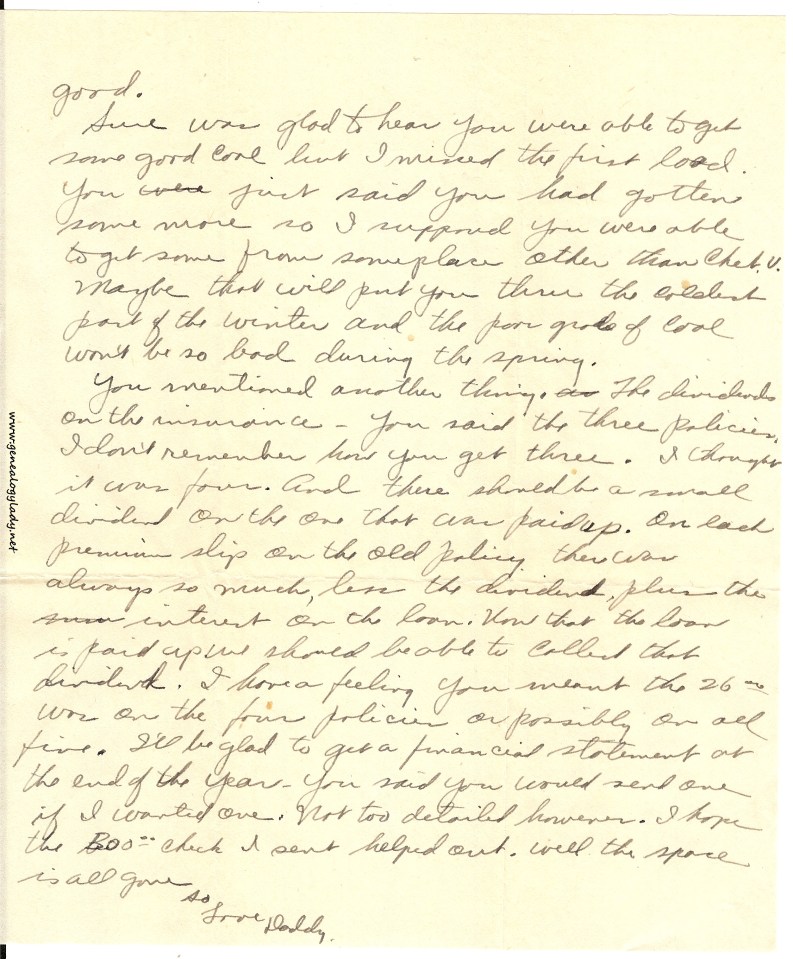 good.
Sure was glad to hear you were able to get
some good coal but I missed the first load.
You were just said you had gotten
some more so I suppoud you were able
to get some from someplace other than Chet. V.
Maybe that will put you thru the coldest
part of the winter and the poor grade of coal
won't be so bad during the spring.
You mentioned another thing. as The dividends
on the insurance - You said the three policies.
I don't remember how you get three. I thought
it was four. And there should be a small
dividend on the one that was paid up. On each
premium slip on the old policy there was
always so much, less the dividend, plus the
sum interest on the loan. Now that the loan
is paid up we should be able to collect that
dividend. I have a feeling you meant the 26 00
was on the four policies or possibly on all
five. I'll be glad to get a financial statement at
the end of the year - you said you would send one
if I wanted one. Not too detailed however. I hope
the 00 check I sent helped out. Well the space
is all gone
so
Love Daddy.
www.genealogylady.net